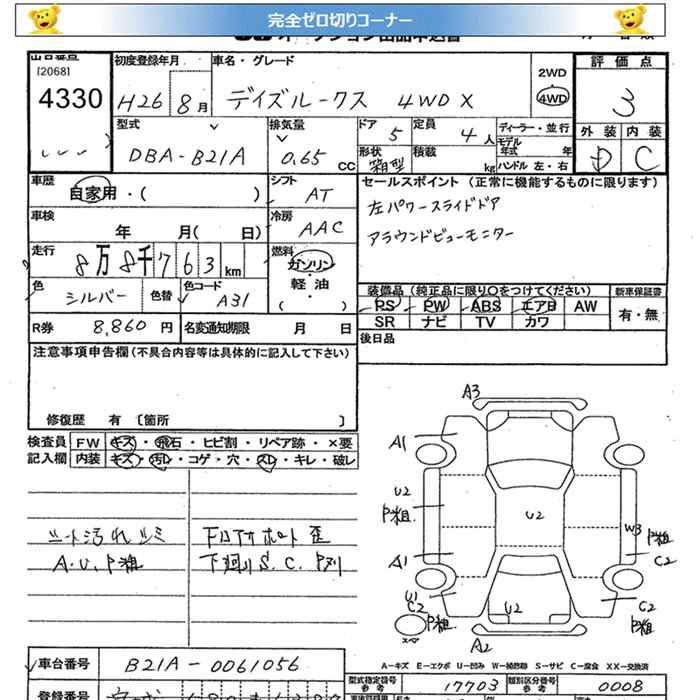 完全ゼロ切りコーナー
[2068]
4330
初度登録年月
H26 8月
車名・グレード
デイズルークス 4WD X
2WD
4WD
評価点
3
外装 内装
D C
型式
DBA-B21A
排気量
0.65 CC
ドア 5
定員 4人
形状 箱型
積載 kg
ディーラー・並行
モデル年式 年
ハンドル 左・右
車歴
自家用・( )
シフト
AT
車検
年 月( 日)
冷房
AAC
走行
8万8千763km
燃料
ガソリン・軽油・( )
色
シルバー
色替
色コード
A31
R券 8,860円
名変通知期限 月 日
セールスポイント (正常に機能するものに限ります)
左パワースライドドア
アラウンドビューモニター
装備品(純正品に限り○をつけてください)
新車保証書
PS PW ABS エアB AW
有・無
SR ナビ TV カワ
後日品
注意事項申告欄(不具合内容等は具体的に記入して下さい)
修復歴 有 〔箇所 〕
検査員 FW キズ・飛石・ヒビ割・リペア跡・×要
記入欄 内装 キズ・汚レ・コゲ・穴・スレ・キレ・破レ
シート汚れ シミ
A.U.P粗
下廻りS.C.
A3
A1
U2
P粗
A1
U1
C2
P粗
スペア
U2
U2
W3
P粗
C2
C2
P粗
A2
A-キズ E-エクボ U-凹み W-補修跡 S-サビ C-腐食 XX-交換済
車台番号
B21A-0061056
型式指定番号
参考
17703
類別区分番号
参考
0008
登録番号